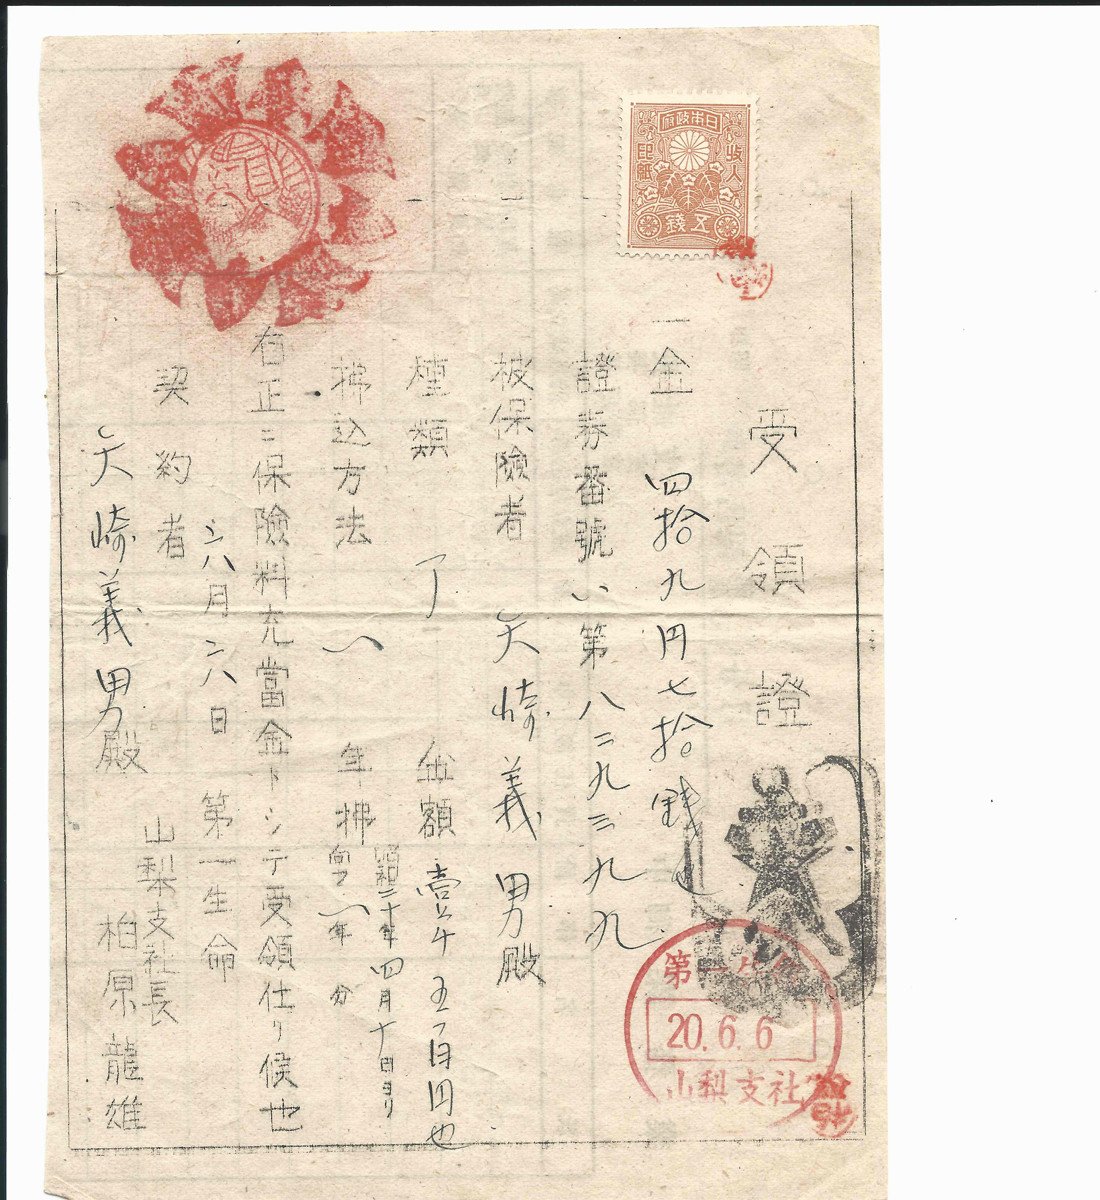 日本政府
收入
印紙
五錢
受領證
一金 四拾九円七拾銭也
證券番號い第八二九三九九
被保險者 矢崎義男殿
種類 了 金額 壹千五百円也
拂込方法 年拂
昭和二十年四月十日ヨリ
向フ一年分
右正ニ保險料充當金トシテ受領仕リ候也
六月六日 第一生命
山梨支社長
柏原龍雄
契約者
矢崎義男殿
第一生命
20.6.6
山梨支社